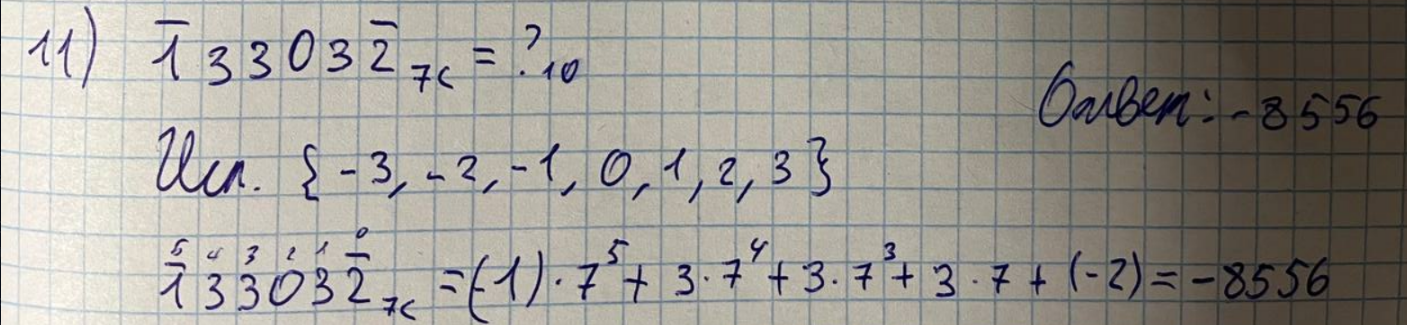 11) 1̅33032̅₇С = ?₁₀
Ответ: -8556
Исп. {-3, -2, -1, 0, 1, 2, 3}
5 4 3 2 1 0
1̅33032̅₇С = (-1)·7⁵ + 3·7⁴ + 3·7³ + 3·7 + (-2) = -8556